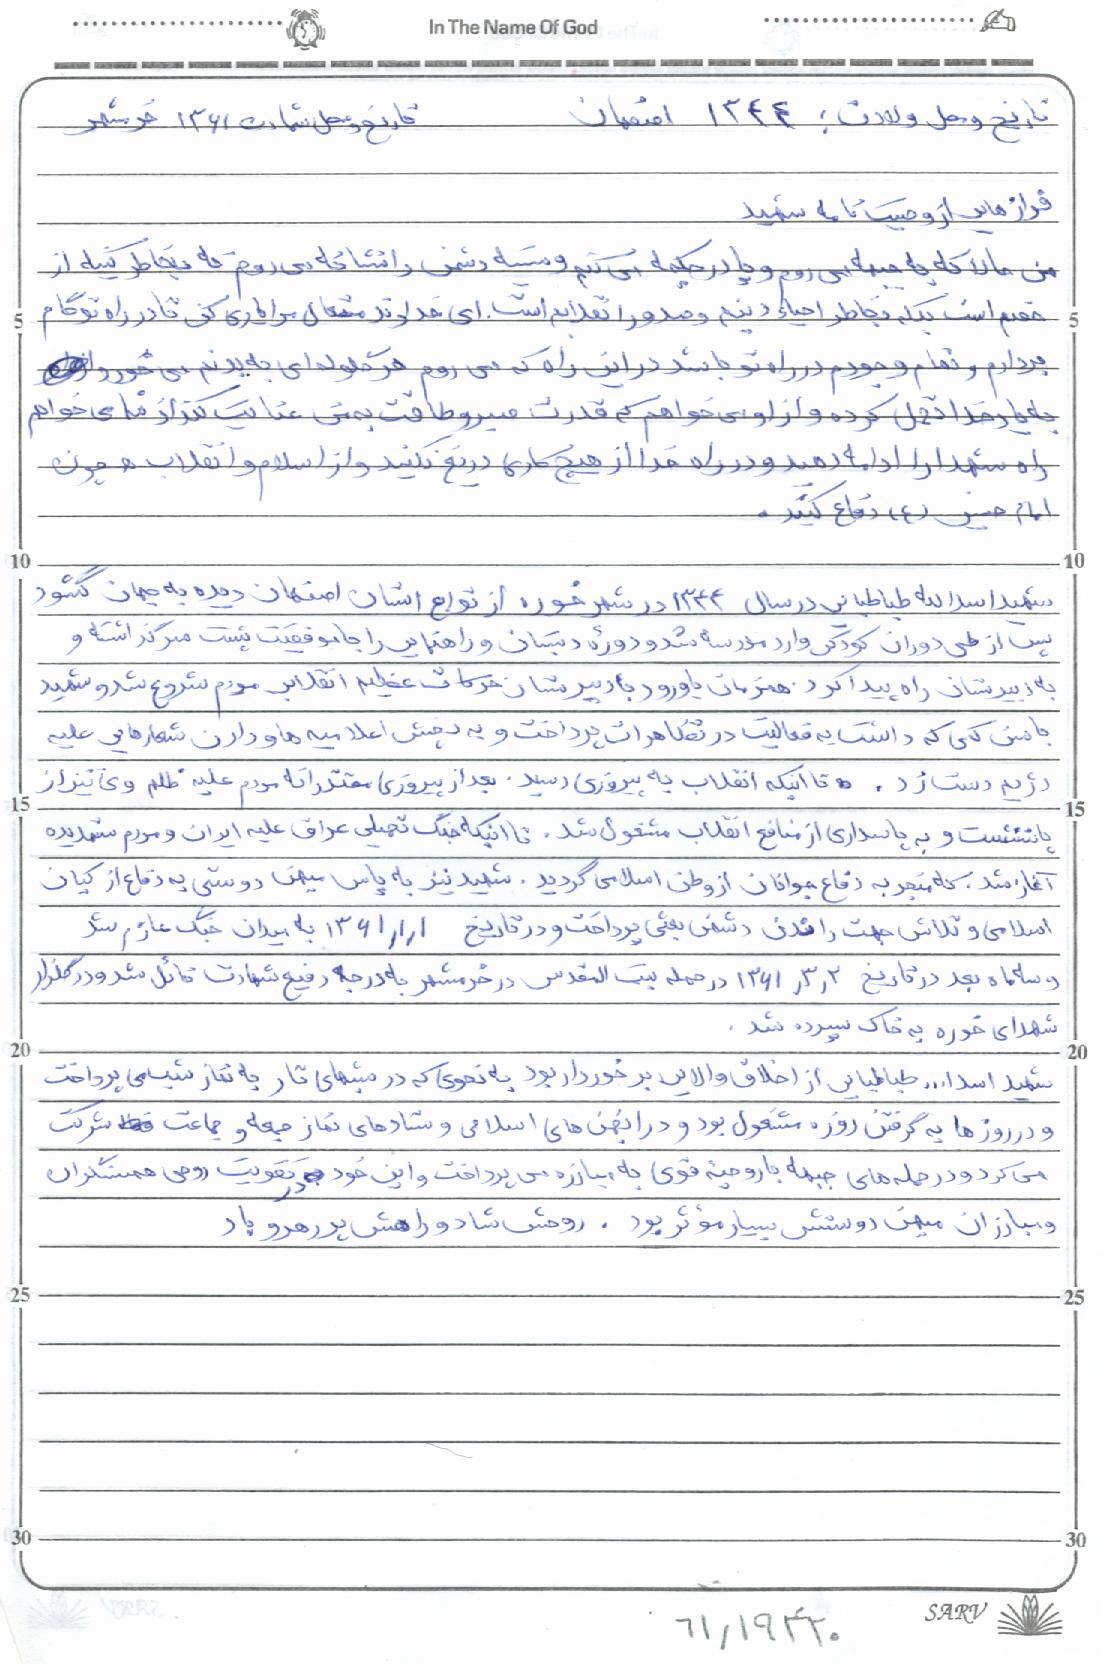 In The Name Of God
تاریخ و محل ولادت: ۱۳۴۴ اصفهان تاریخ و محل شهادت ۱۳۶۱ خرمشهر
فرازهایی از وصیت نامه شهید
من حالا که به جبهه می روم و پا در چکمه می کنم و سینه دشمن را نشانه می روم نه بخاطر کینه از
خصم است بلکه بخاطر احیاء دینم و صدور انقلابم است. ای خداوند متعال مرا یاری کن تا در راه تو گام
بردارم و تمام وجودم در راه تو باشد در این راه که می روم هر گلوله ای به بدنم می خورد
به یاد خدا تحمل کرده و از او می خواهم که قدرت صبر و طاقت به من عنایت کند از شما می خواهم
راه شهدا را ادامه دهید و در راه خدا از هیچ کاری دریغ نکنید و از اسلام و انقلاب همچون
امام حسین (ع) دفاع کنید.
شهید اسدالله طباطبایی در سال ۱۳۴۴ در شهر خوره از توابع استان اصفهان دیده به جهان گشود
پس از طی دوران کودکی وارد مدرسه شد و دوره دبستان و راهنمایی را با موفقیت پشت سر گذاشته و
به دبیرستان راه پیدا کرد. همزمان با ورود به دبیرستان حرکات عظیم انقلاب مردم شروع شد و شهید
با سن کمی که داشت به فعالیت در تظاهرات پرداخت و به پخش اعلامیه ها و دادن شعارهایی علیه
رژیم دست زد. تا اینکه انقلاب به پیروزی رسید. بعد از پیروزی مقتدرانه مردم علیه ظلم وی نیز از
پا ننشست و به پاسداری از منافع انقلاب مشغول شد. تا اینکه جنگ تحمیلی عراق علیه ایران و مردم ستمدیده
آغاز شد. که منجر به دفاع جوانان از وطن اسلامی گردید. شهید نیز به پاس میهن دوستی به دفاع از کیان
اسلامی و تلاش جهت راندن دشمن بعثی پرداخت و در تاریخ ۱۳۶۱/۱/۱ به میدان جنگ عازم شد
و سه ماه بعد در تاریخ ۱۳۶۱/۳/۲ در حمله بیت المقدس در خرمشهر به درجه رفیع شهادت نائل شد و در گلزار
شهدای خوره به خاک سپرده شد.
شهید اسدا... طباطبایی از اخلاق والایی برخوردار بود به نحوی که در شبهای تار به نماز شب می پرداخت
و در روزها به گرفتن روزه مشغول بود و در انجمن های اسلامی و ستادهای نماز جمعه و جماعت شرکت
می کرد و در حمله های جبهه با روحیه قوی به مبارزه می پرداخت و این خود در تقویت روحی همسنگران
و مبارزان میهن دوستش بسیار مؤثر بود. روحش شاد و راهش پر رهرو باد
SARV
۶۱/۱۹۴۲۰